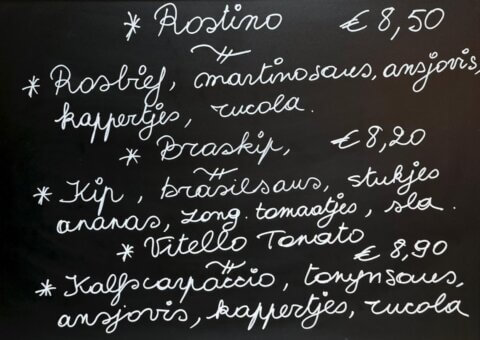 * Rostino € 8,50
* Rosbief, martinosaus, ansjovis,
kappertjes, rucola.
* Braskip, € 8,20
* Kip, brasilsaus, stukjes
ananas, zong. tomaatjes, sla.
* Vitello Tonato € 8,90
* Kalfscarpaccio, tonijnsaus,
ansjovis, kappertjes, rucola